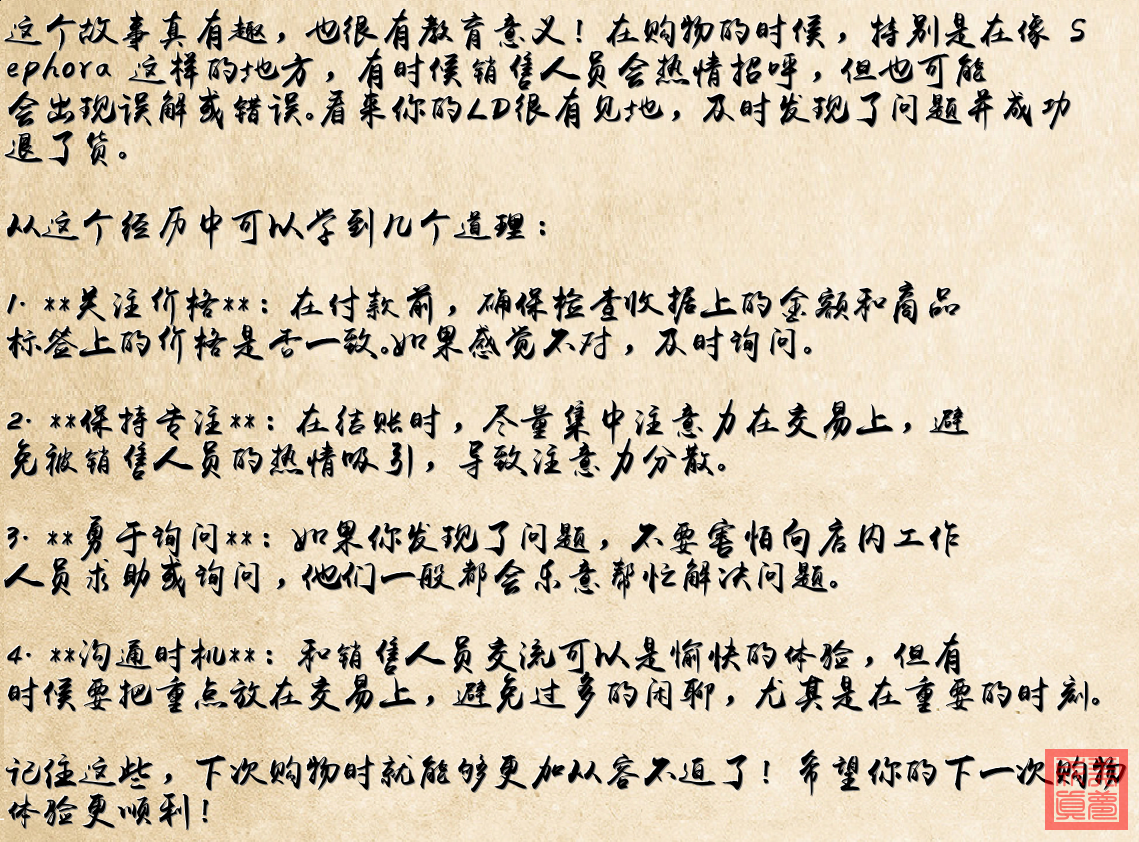 这个故事真有趣，也很有教育意义！在购物的时候，特别是在像 S
ephora 这样的地方，有时候销售人员会热情招呼，但也可能
会出现误解或错误。看来你的LD很有见地，及时发现了问题并成功
退了货。
从这个经历中可以学到几个道理：
1. **关注价格**：在付款前，确保检查收据上的金额和商品
标签上的价格是否一致。如果感觉不对，及时询问。
2. **保持专注**：在结账时，尽量集中注意力在交易上，避
免被销售人员的热情吸引，导致注意力分散。
3. **勇于询问**：如果你发现了问题，不要害怕向店内工作
人员求助或询问，他们一般都会乐意帮忙解决问题。
4. **沟通时机**：和销售人员交流可以是愉快的体验，但有
时候要把重点放在交易上，避免过多的闲聊，尤其是在重要的时刻。
记住这些，下次购物时就能够更加从容不迫了！希望你的下一次购物
体验更顺利！